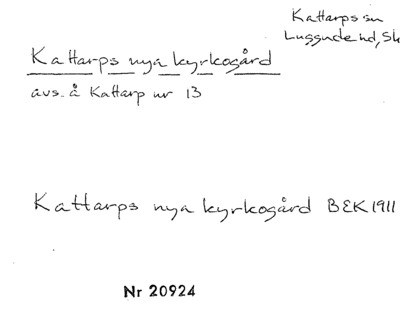 Kattarps sn
Luggude hd, Sk
Kattarps nya kyrkogård
avs. å Kattarp nr 13
Kattarps nya kyrkogård BEK 1911
Nr 20924